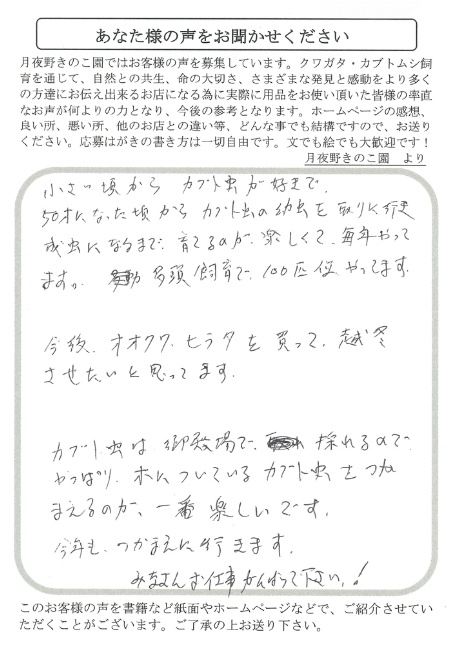 あなた様の声をお聞かせください
月夜野きのこ園ではお客様の声を募集しています。クワガタ・カブトムシ飼
育を通じて、自然との共生、命の大切さ、さまざまな発見と感動をより多く
の方達にお伝え出来るお店になる為に実際に用品をお使い頂いた皆様の率直
なお声が何よりの力となり、今後の参考となります。ホームページの感想、
良い所、悪い所、他のお店との違い等、どんな事でも結構ですので、お送り
ください。応募はがきの書き方は一切自由です。文でも絵でも大歓迎です！
月夜野きのこ園　より
小さい頃から カブト虫が好きで、
50才になった頃から カブト虫の幼虫を取りに行き
成虫になるまで、育てるのが、楽しくて、毎年やって
ますが、多頭飼育で、100匹位やってます。
今後、オオクワ、ヒラタを買って、越冬
させたいと思ってます。
カブト虫は 御殿場で、採れるので
やっぱり、木についているカブト虫をつか
まえるのが、一番楽しいです。
今年も、つかまえに行きます。
みなさんお仕事がんばって下さい！
このお客様の声を書籍など紙面やホームページなどで、ご紹介させてい
ただくことがございます。ご了承の上お送り下さい。